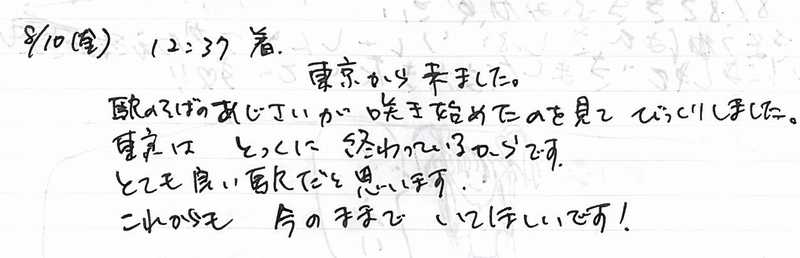 8/10(金) 12:37 着.
東京から来ました。
駅のそばのあじさいが咲き始めたのを見てびっくりしました。
東京はとっくに終わっているからです.
とても良い駅だと思います.
これからも今のままでいてほしいです!